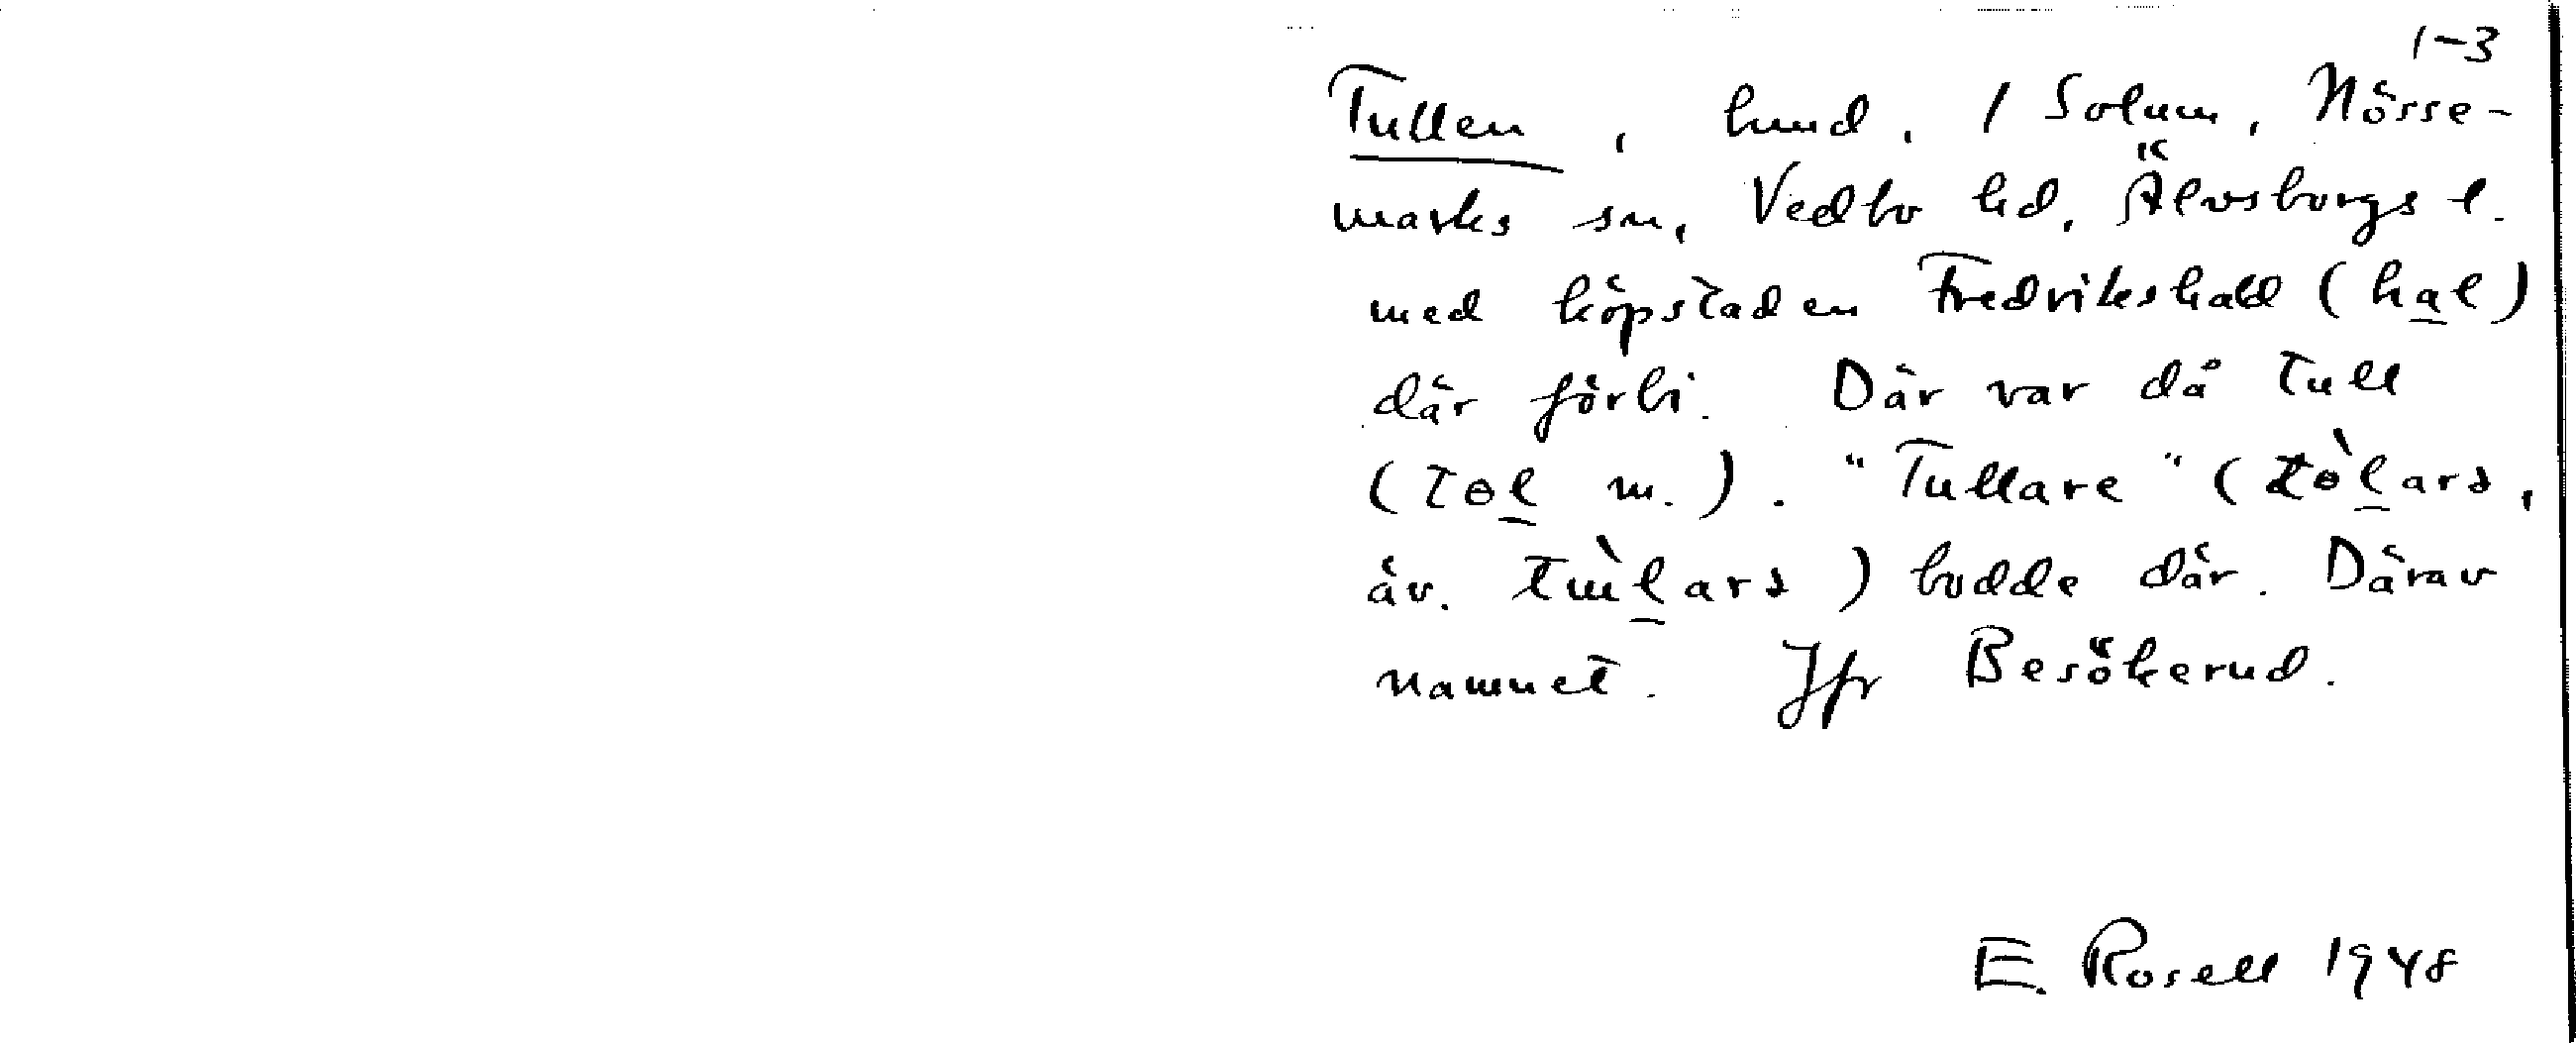 1-3
Tullen, hmd. 1 Solum, Nösse-
marks sn, Vedbo hd, Älvsborgs l.
med köpstaden Fredrikshald (hal)
där förbi. Där var då tull
(tɵl m.). "Tullare" (tɵ̀larə,
äv. tɯ̀larə) bodde där. Därav
namnet. Jfr Besökerud.
E. Rosell 1948